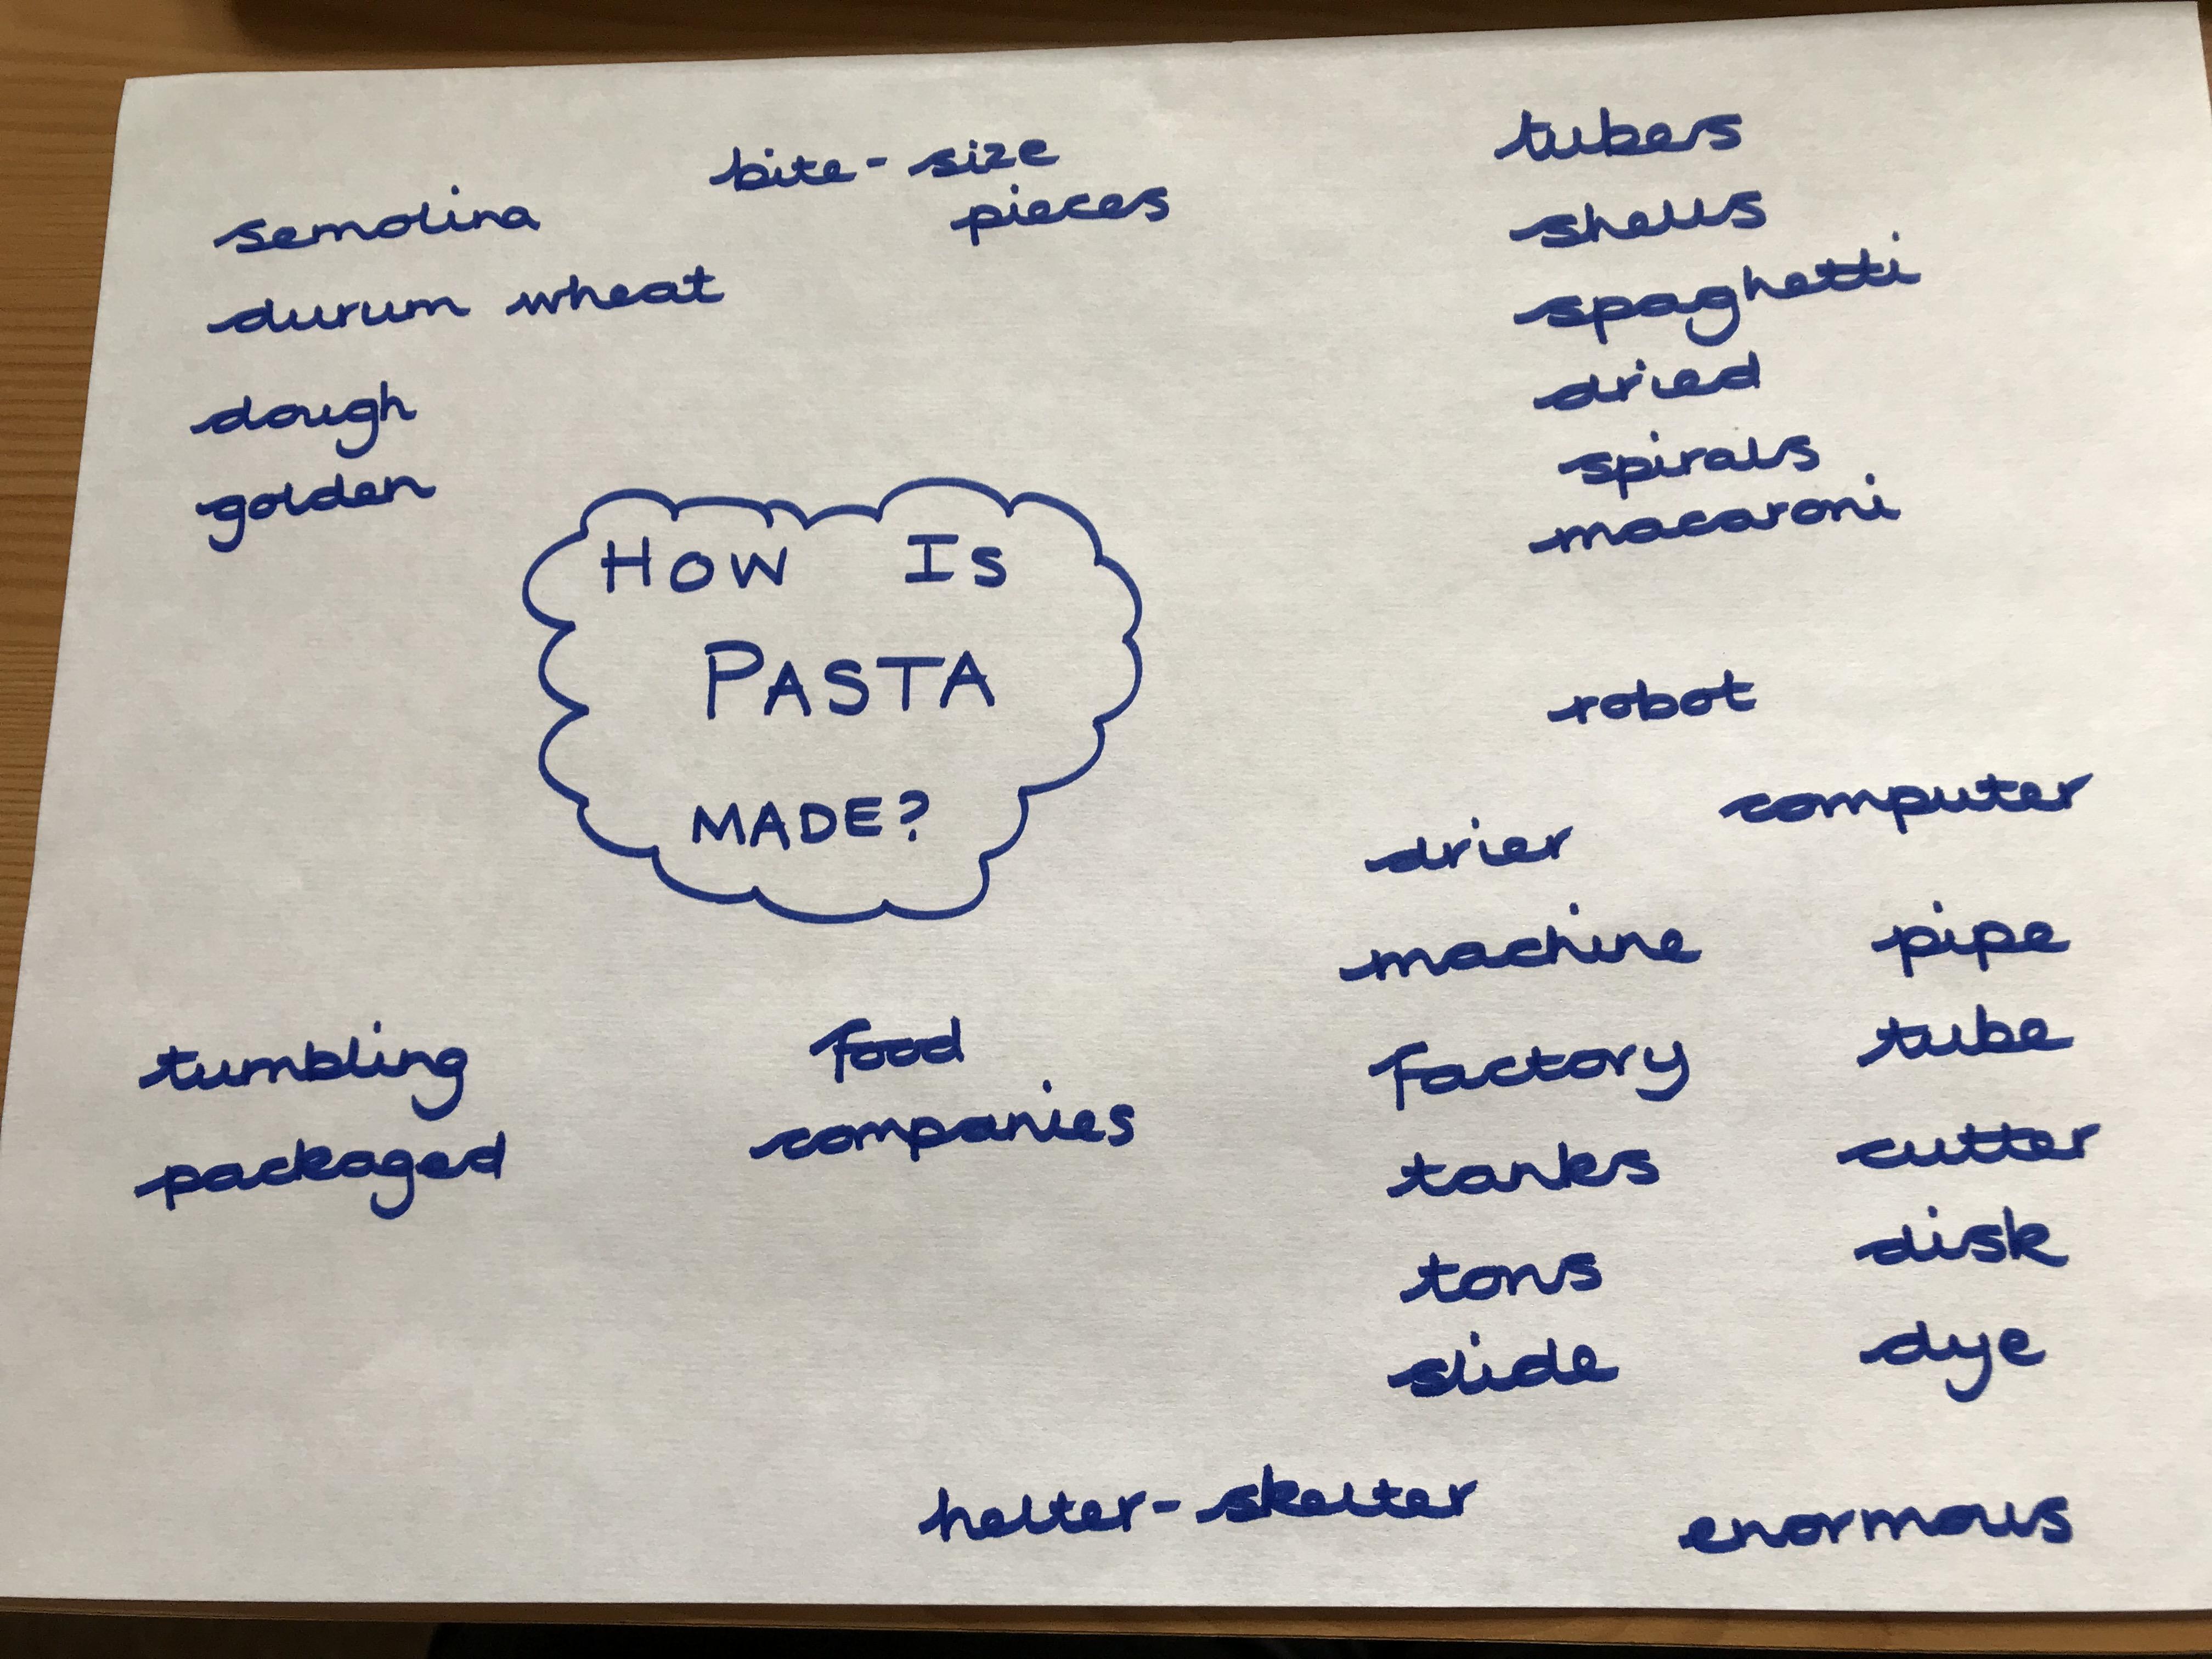 bite-size
pieces
semolina
durum wheat
dough
golden
tubers
shells
spaghetti
dried
spirals
macaroni
HOW IS
PASTA
MADE?
robot
computer
drier
machine
pipe
factory
tube
tanks
cutter
tons
disk
slide
dye
tumbling
packaged
food
companies
helter-skelter
enormous